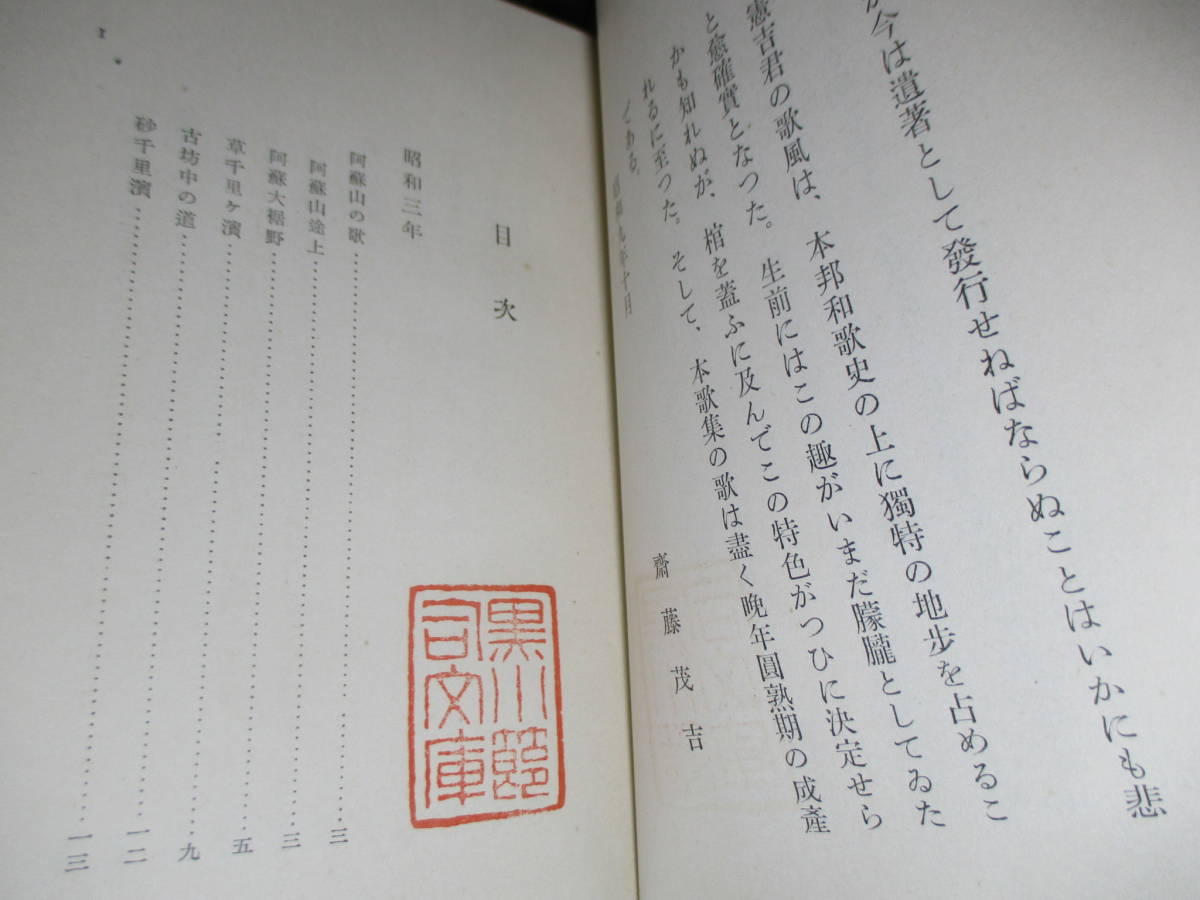 今は遺著として發行せねばならぬことはいかにも悲
憲吉君の歌風は、本邦和歌史の上に獨特の地步を占めるこ
と愈確實となつた。生前にはこの趣がいまだ朦朧としてゐた
かも知れぬが、棺を蓋ふに及んでこの特色がつひに決定せら
れるに至つた。そして、本歌集の歌は盡く晩年圓熟期の成產
である。
昭和九年十月
齋藤茂吉
目次
昭和三年
阿蘇山の歌……三
阿蘇山途上……三
阿蘇大裾野……五
草千里ヶ濱……九
古坊中の道……一二
砂千里濱……一三
1
黒川節
司文庫